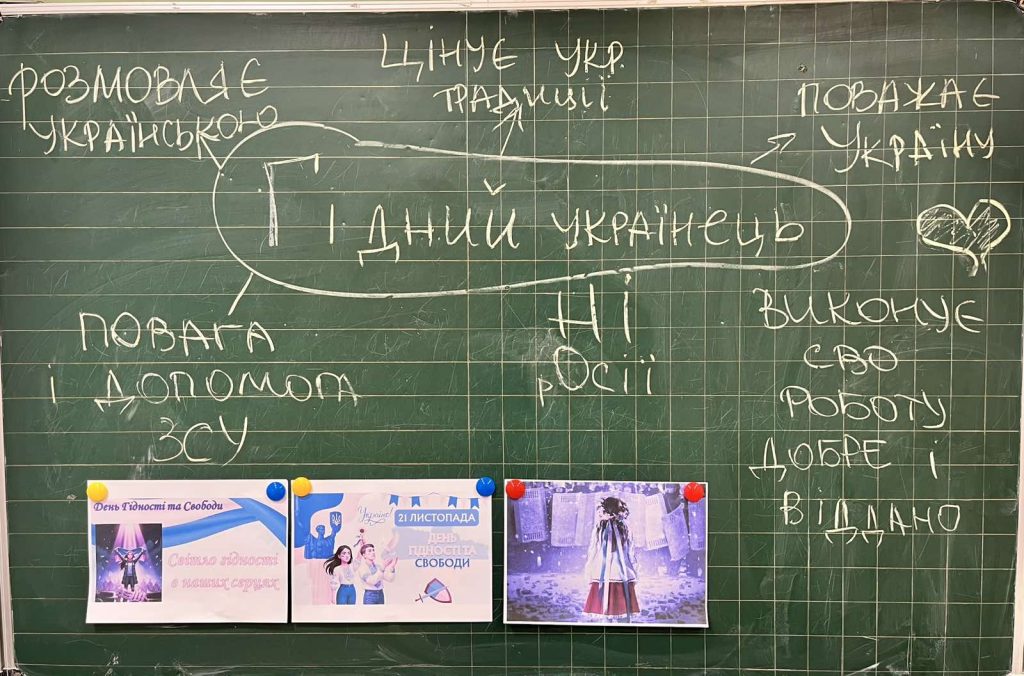 РОЗМОВЛЯЄ
УКРАЇНСЬКОЮ
ЦІНУЄ УКР.
ТРАДИЦІЇ
ПОВАЖАЄ
УКРАЇНУ
ГІДНИЙ УКРАЇНЕЦЬ
ПОВАГА
І ДОПОМОГА
ЗСУ
НІ
рОСІЇ
ВИКОНУЄ
СВО
РОБОТУ
ДОБРЕ І
ВІДДАНО
День Гідності та Свободи
Світло гідності
в наших серцях
Україно!
21 ЛИСТОПАДА
ДЕНЬ
ГІДНОСТІ ТА
СВОБОДИ